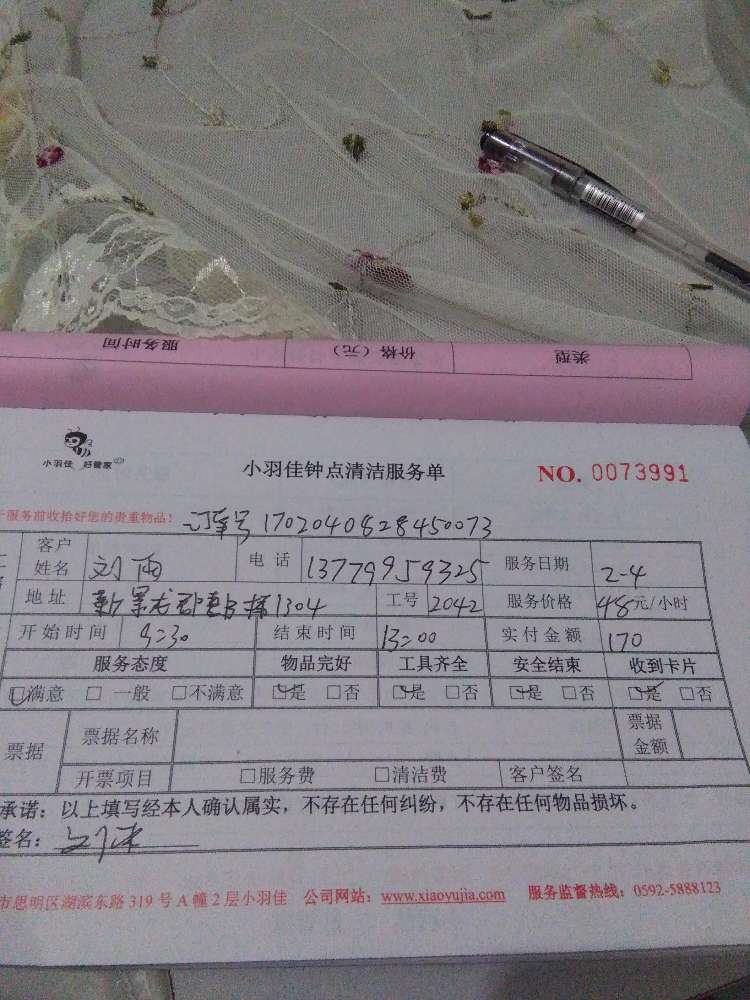 类型 价格（元） 服务时间
小羽佳 好管家
小羽佳钟点清洁服务单 NO. 0073991
服务前收拾好您的贵重物品! 订单号 1702040828450073
客户姓名 刘雨 电话 13779959325 服务日期 2-4
地址 1304 工号 2042 服务价格 48元/小时
开始时间 9:30 结束时间 13:00 实付金额 170
服务态度 物品完好 工具齐全 安全结束 收到卡片
☑满意 □一般 □不满意 ☑是 □否 ☑是 □否 ☑是 □否 ☑是 □否
票据 票据名称 票据金额
开票项目 □服务费 □清洁费 客户签名
承诺：以上填写经本人确认属实，不存在任何纠纷，不存在任何物品损坏。
签名：
市思明区湖滨东路319号A幢2层小羽佳 公司网站：www.xiaoyujia.com 服务监督热线：0592-5888123